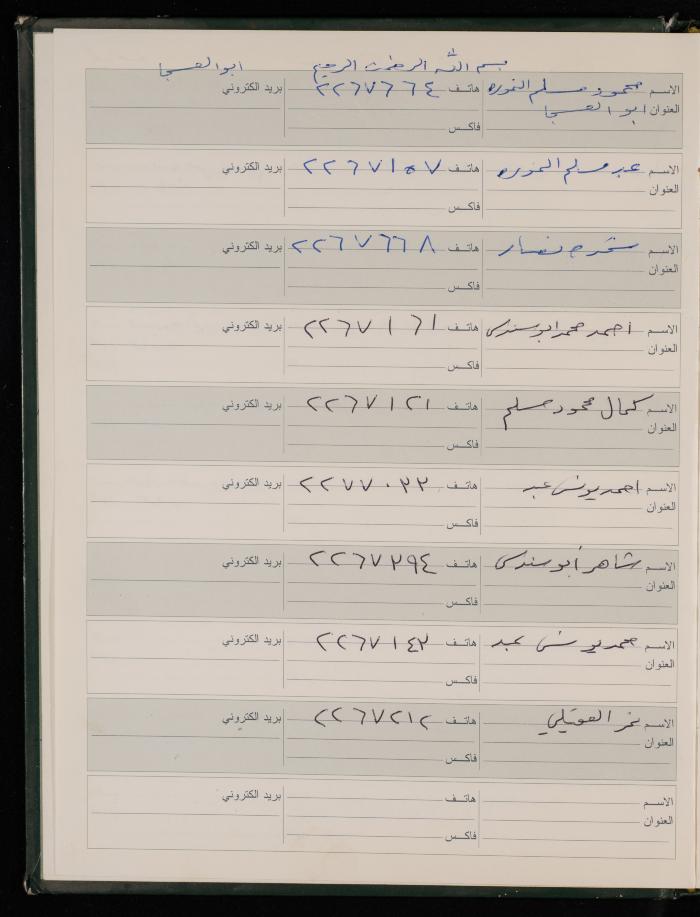 بسم الله الرحمن الرحيم ابو العسجا
الاسم محمود مسلم النموره هاتف ٢٢٦٧٦٦٤ بريد الكتروني
العنوان ابو العسجا
فاكس
الاسم عبد مسلم النموره هاتف ٢٢٦٧١٥٧ بريد الكتروني
العنوان
فاكس
الاسم نصار هاتف ٢٢٦٧٦٦٨ بريد الكتروني
العنوان
فاكس
الاسم احمد محمد ابو سندس هاتف ٢٢٦٧١٦١ بريد الكتروني
العنوان
فاكس
الاسم كمال محمود مسلم هاتف ٢٢٦٧١٢١ بريد الكتروني
العنوان
فاكس
الاسم احمد يونس عبد هاتف ٢٢٧٧٠٣٣ بريد الكتروني
العنوان
فاكس
الاسم شاهر أبو سندس هاتف ٢٢٦٧٣٩٤ بريد الكتروني
العنوان
فاكس
الاسم محمد يونس عبد هاتف ٢٢٦٧١٤٣ بريد الكتروني
العنوان
فاكس
الاسم هاتف ٢٢٦٧٢١٢ بريد الكتروني
العنوان
فاكس
الاسم هاتف بريد الكتروني
العنوان
فاكس